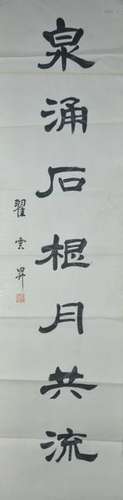 泉涌石根月共流
翟雲昇